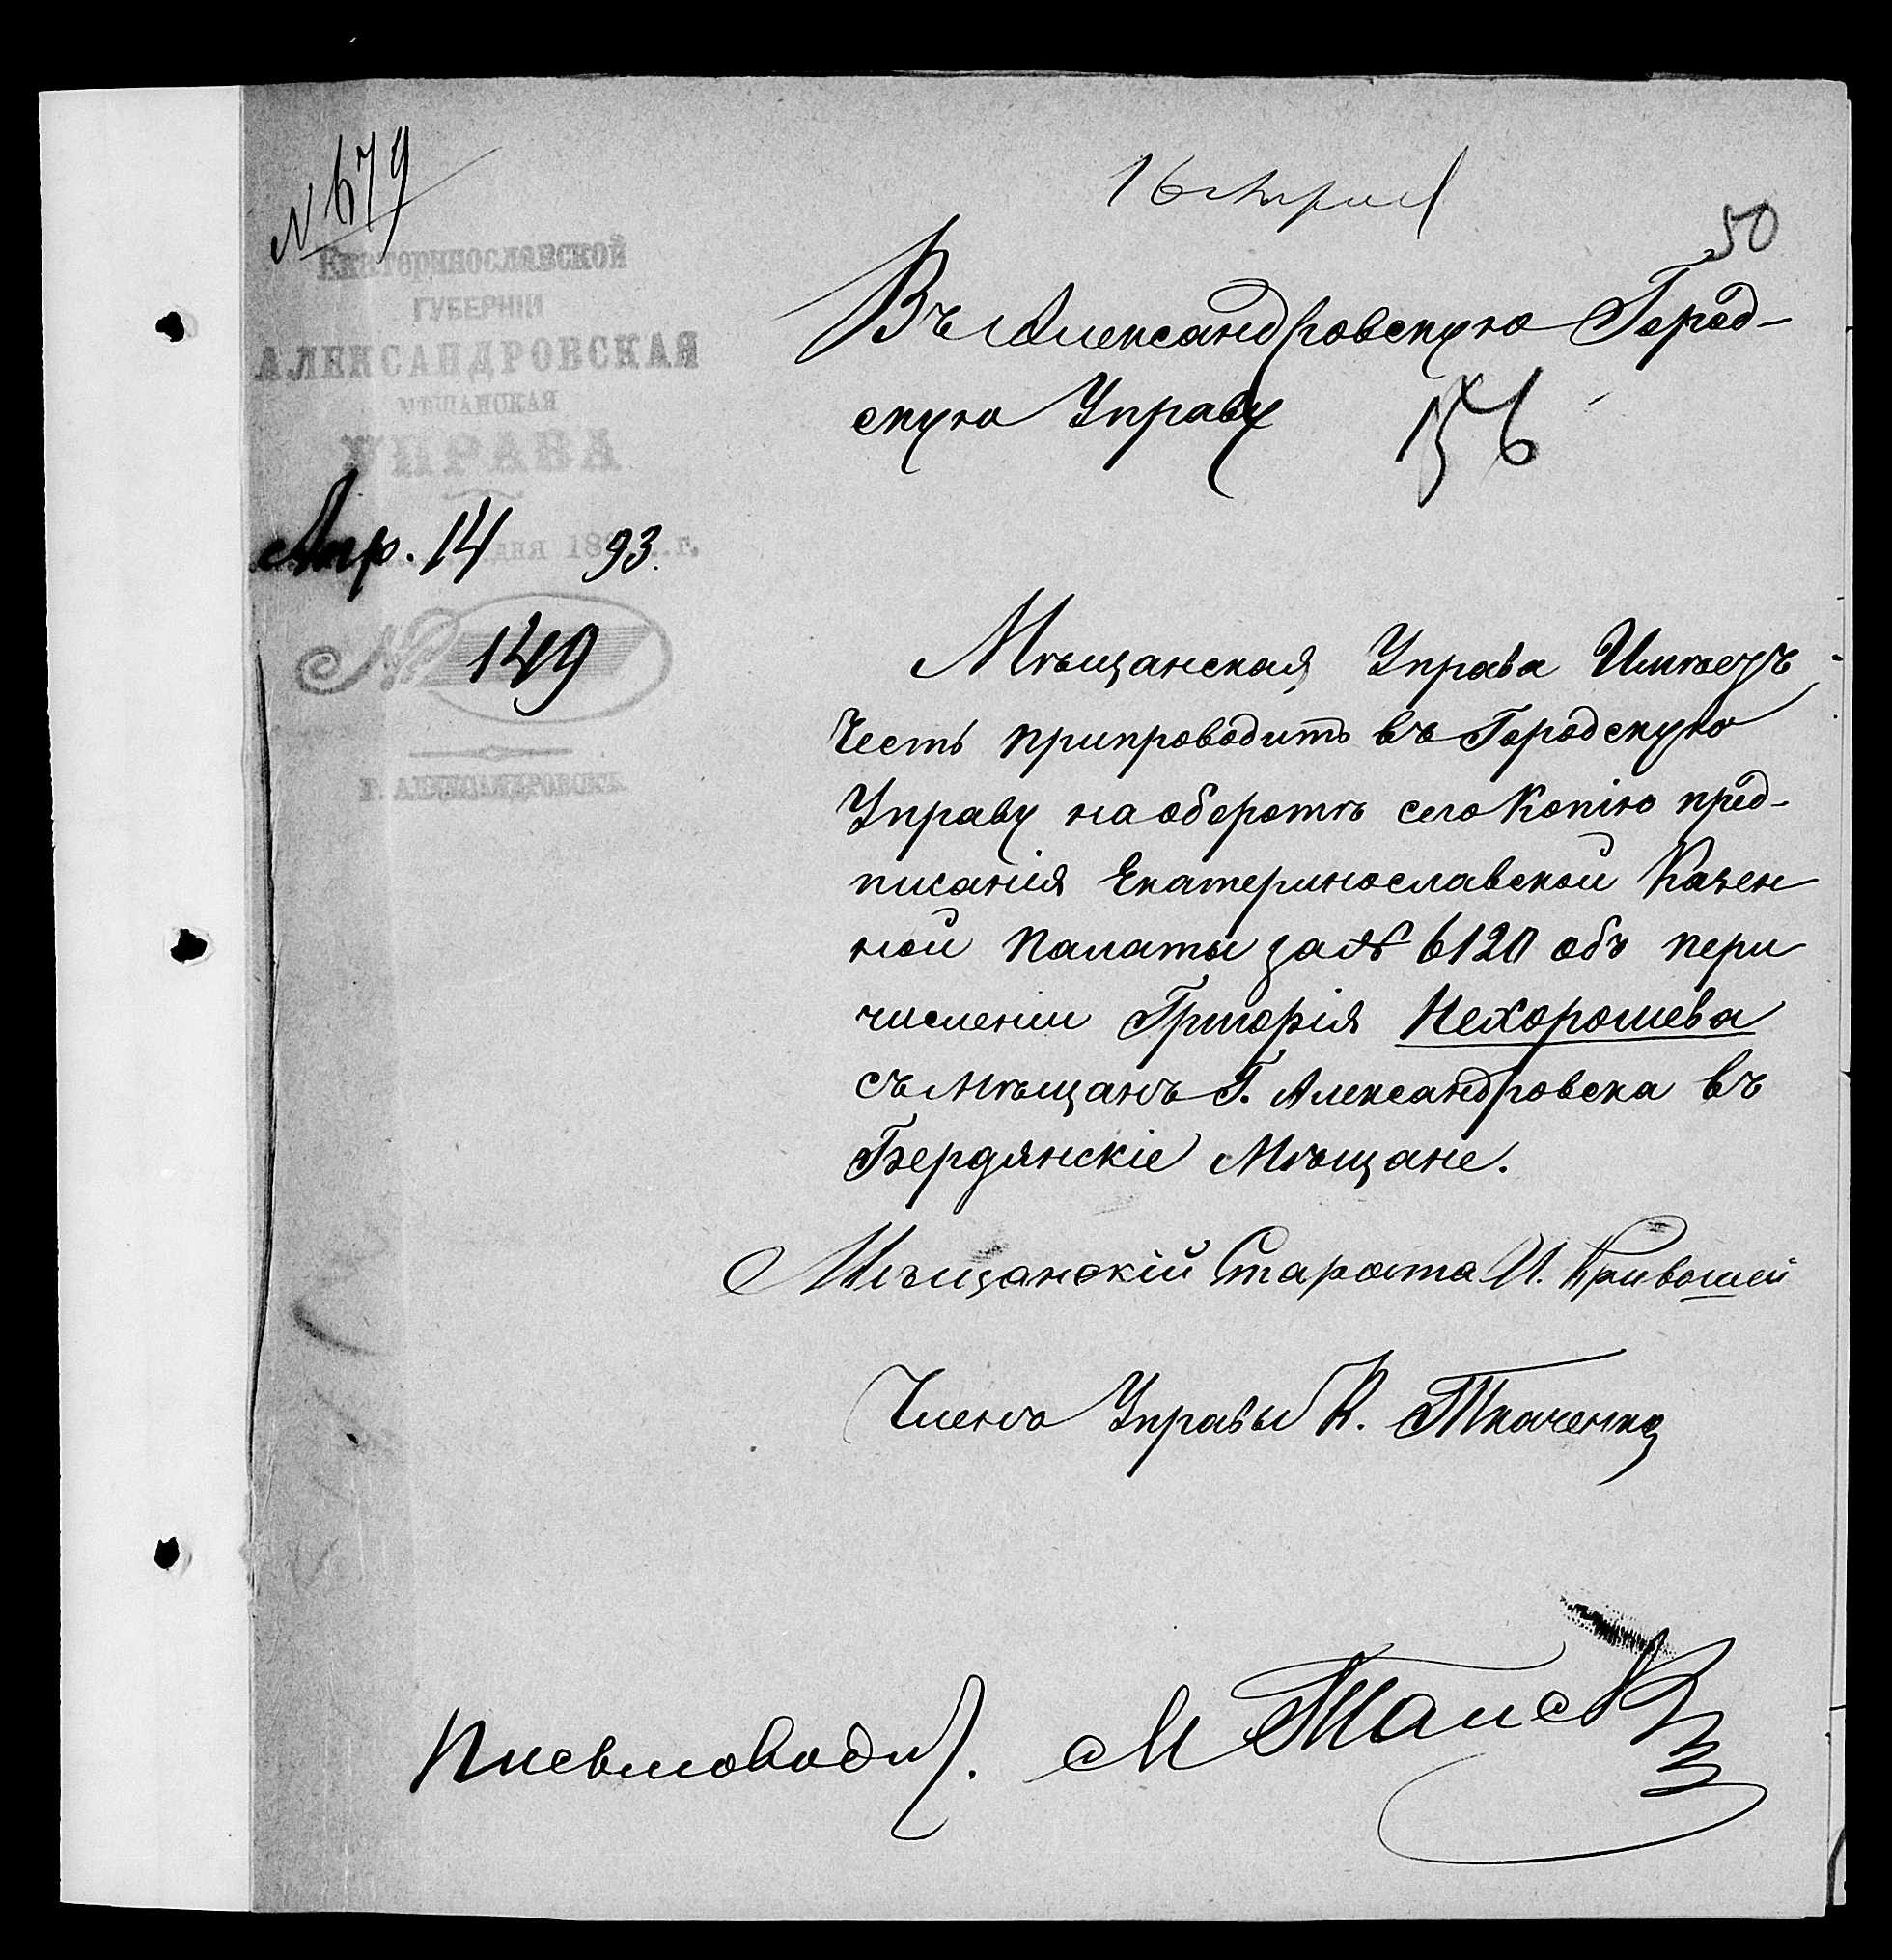 № 679
16 Апрел
50
Екатеринославской
ГУБЕРНІИ
АЛЕКСАНДРОВСКАЯ
МѢЩАНСКАЯ
УПРАВА
Апр. 14 дня 1893 г.
№ 149
Г. АЛЕКСАНДРОВСКЪ
Въ Александровскую Город-
скую Управу
156
Мѣщанская Управа Имѣетъ
Честь припроводить въ Городскую
Управу на оборотѣ сего Копію пред-
писанія Екатеринославской Казен
ной Палаты за № 6120 объ пери
численіи Григорія Нехорошева
съ мѣщанъ Г. Александровска въ
Бердянскіе Мѣщане.
Мѣщанскій Староста И. Кривошей
Членъ Управы К. Ткаченко
Письмовод. М